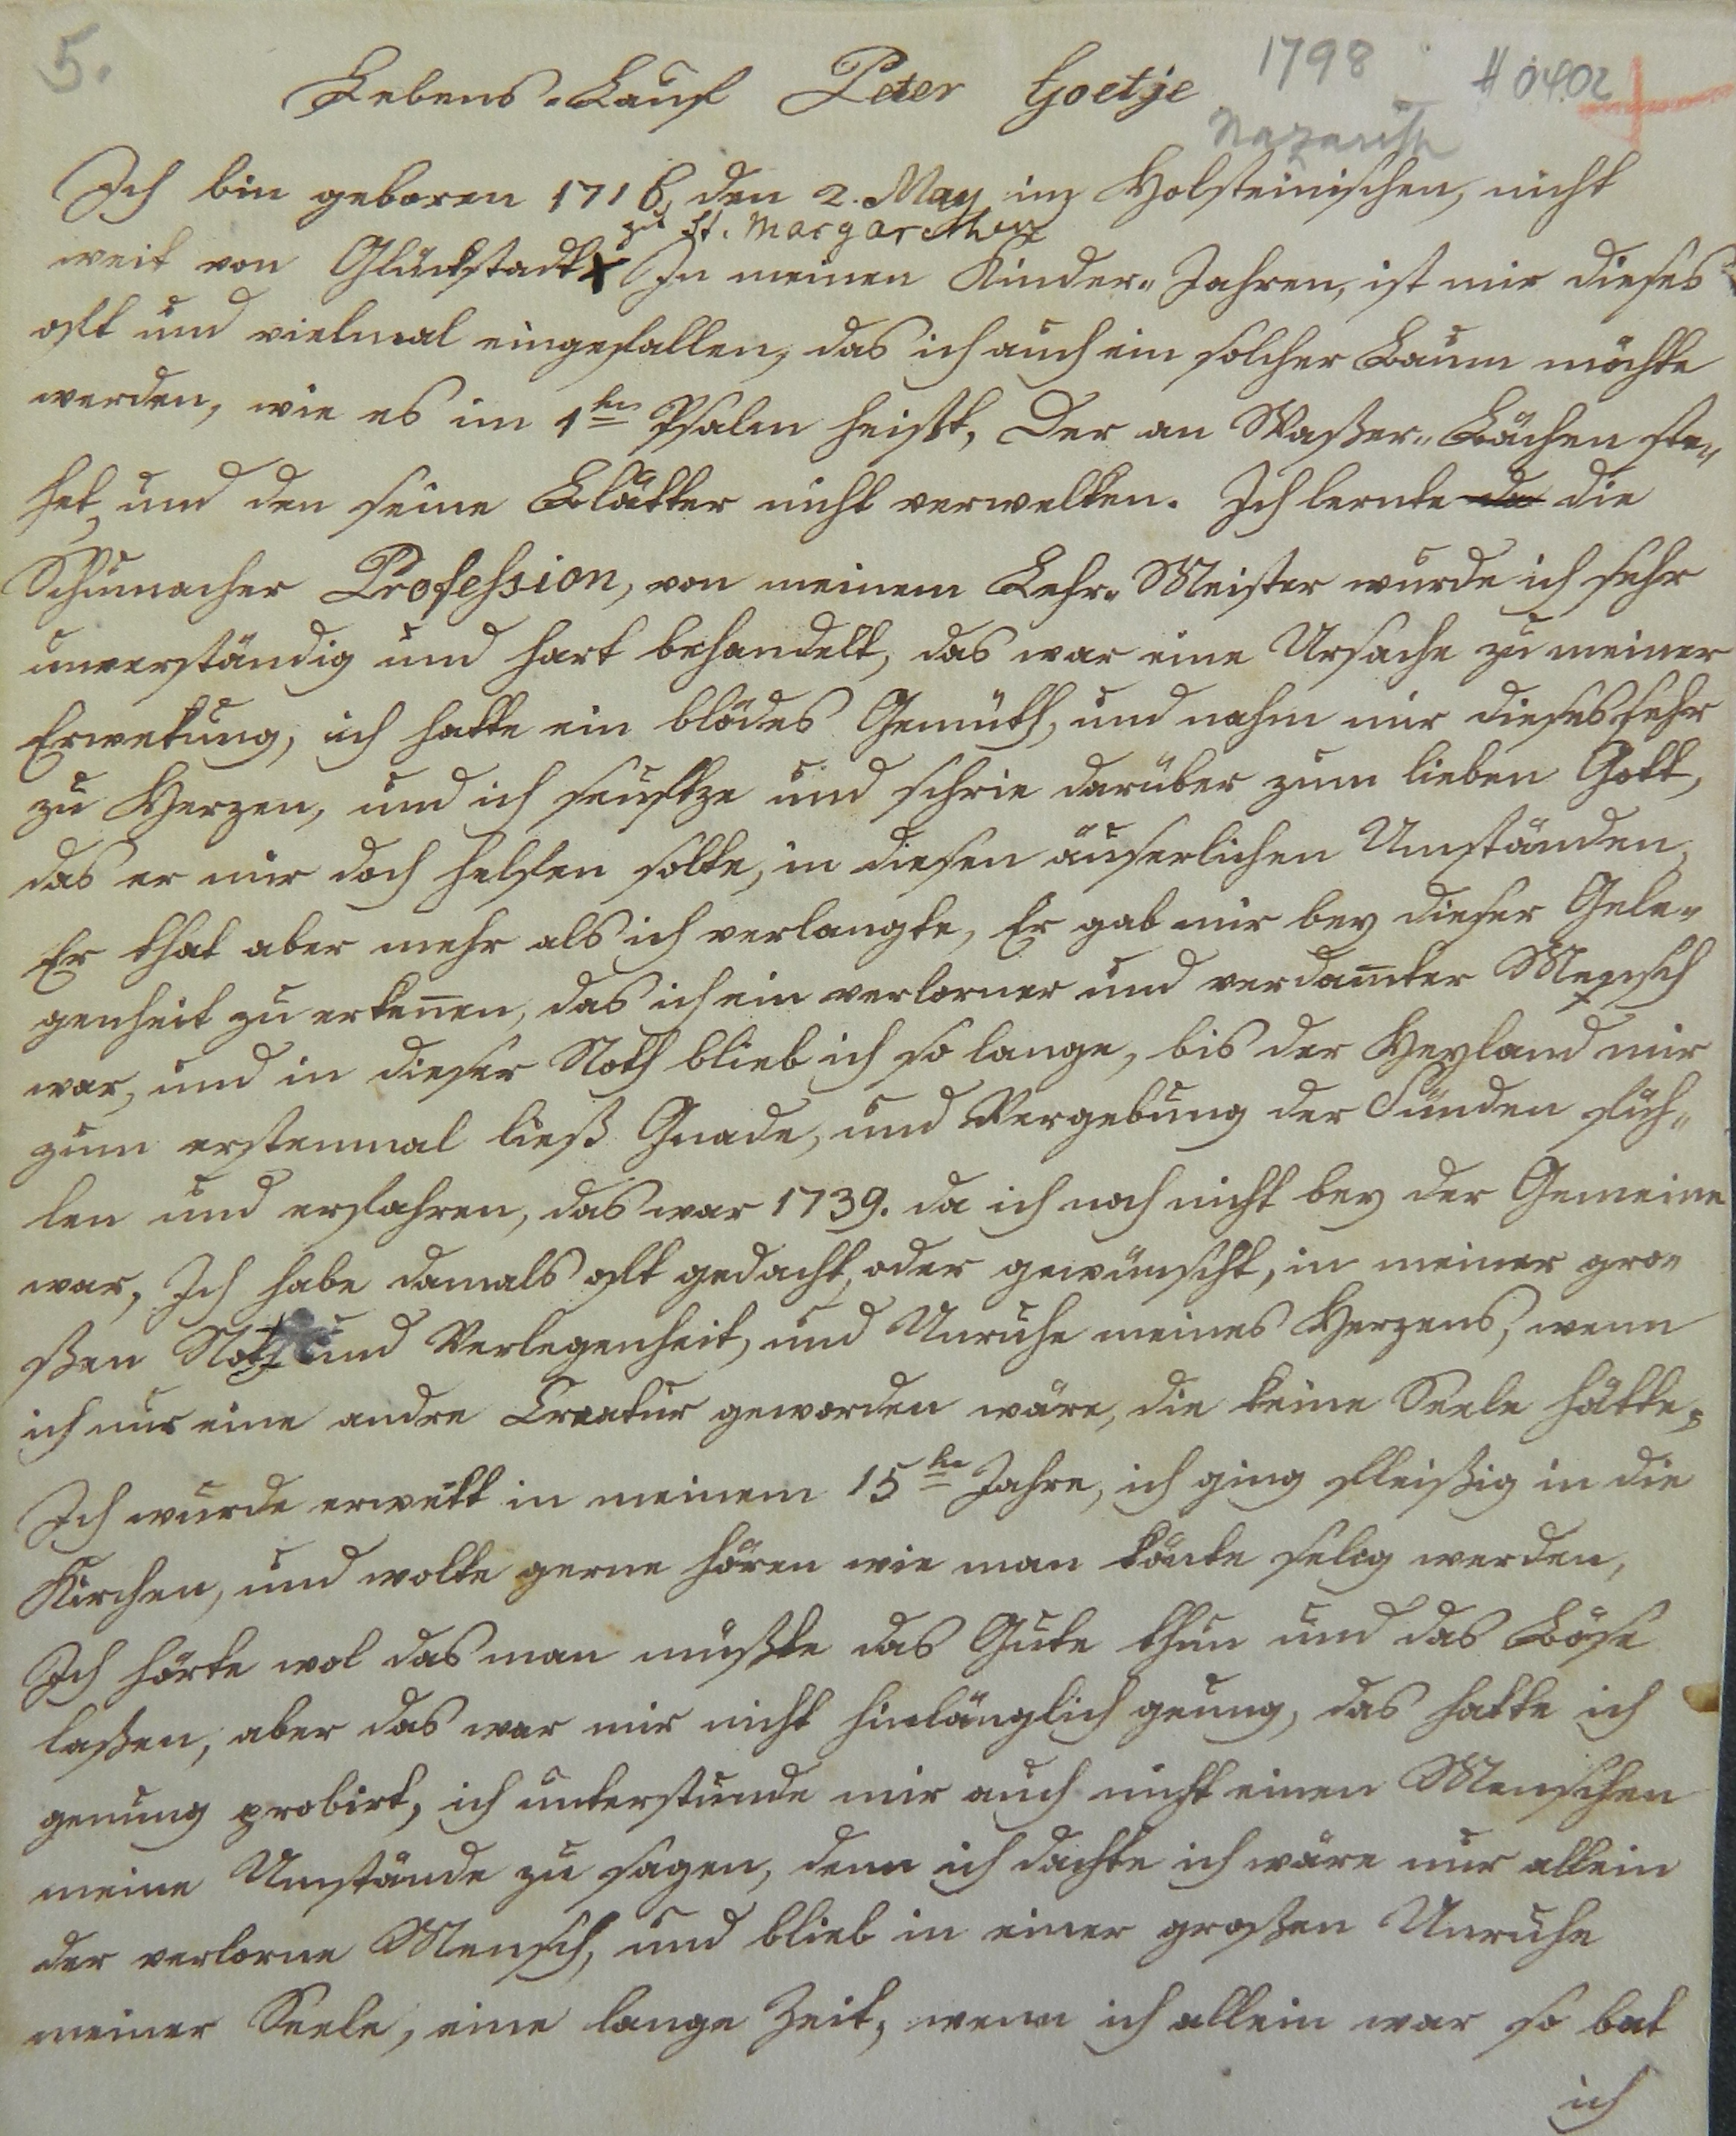 5.
Lebens-Lauf Peter Goetje
1798
# 0402
Nazareth
Ich bin geboren 1716, den 2. May im Holsteinischen, nicht
zu St. Margarethen
weit von Glückstadt x In meinen Kinder„Jahren, ist mir dieses
oft und vielmal eingefallen, das ich auch ein solcher Baum möchte
werden, wie es im 1ten Psalm heißt, Der an Waßer„Bächen ste„
het, und den seine Blätter nicht verwelken. Ich lernte die
Schumacher Profession, von meinem Lehr„Meister wurde ich sehr
unverständig und hart behandelt, das war eine Ursache zu meiner
Erwekung, ich hatte ein blödes Gemüth, und nahm mir dieses sehr
zu Herzen, und ich seuftze und schrie darüber zum lieben Gott,
das er mir doch helfen solte, in diesen äuserlichen Umständen,
Er that aber mehr als ich verlangte, Er gab mir bey dieser Gele„
genheit zu erkeñen, das ich ein verlorner und verdam̄ter Mensch
war, und in dieser Noth blieb ich so lange, bis der Heyland mir
zum erstenmal ließ Gnade, und Vergebung der Sünden füh„
len und erfahren, das war 1739. da ich noch nicht bey der Gemeine
war, Ich habe damals oft gedacht, oder gewünscht, in meiner gro„
ßen Noth und Verlegenheit, und Unruhe meines Herzens, wenn
ich nur eine andre Creatur geworden wäre, die keine Seele hätte,
Ich wurde erwekt in meinem 15ten Jahre, ich ging fleißig in die
Kirchen, und wolte gerne hören wie man könte selig werden,
Ich hörte wol das man müßte das Gute thun und das Böse
laßen, aber das war mir nicht hinlänglich genug, das hatte ich
genung probirt, ich unterstunde mir auch nicht einen Menschen
meine Umstände zu sagen, denn ich dachte ich wäre nur allein
der verlorne Mensch, und blieb in einer großen Unruhe
meiner Seele, eine lange Zeit, wenn ich allein war so bat
ich